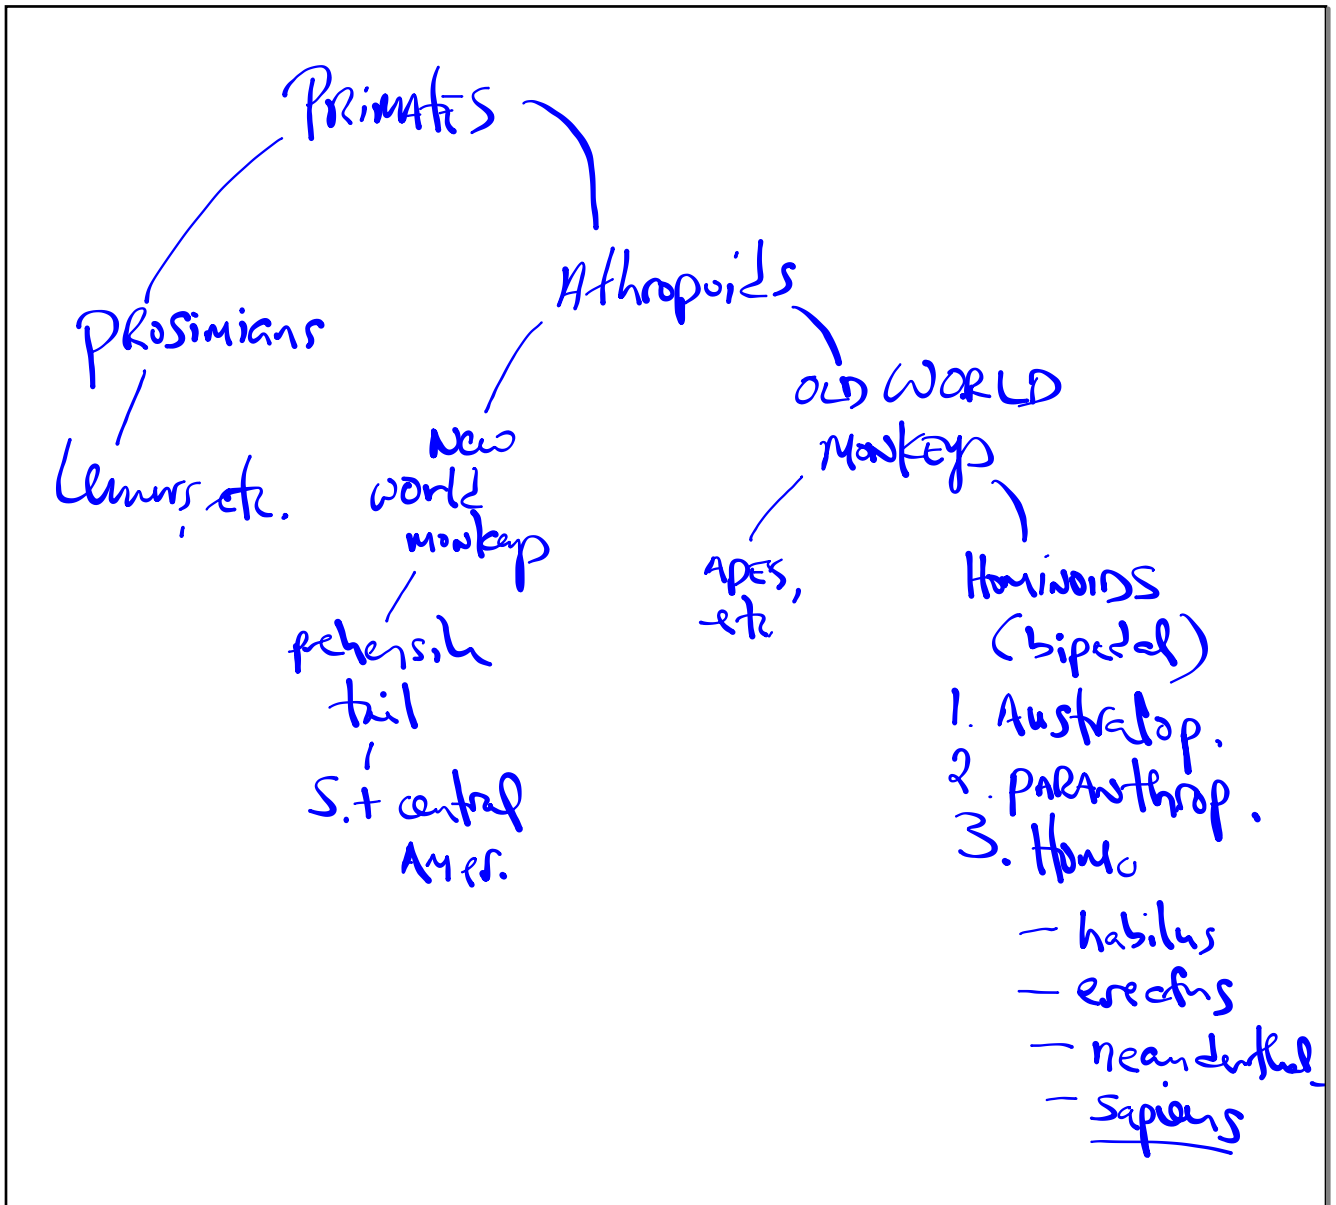 PRIMATES
Athropoids
PROSIMIANS
Lemurs, etc.
OLD WORLD
MONKEYS
New
world
monkeys
prehensile
tail
S. + central
Amer.
APES,
etc
HOMINOIDS
(bipedal)
1. Australop.
2. PARANthrop.
3. Homo
- habilus
- erectus
- neanderthal
- sapiens